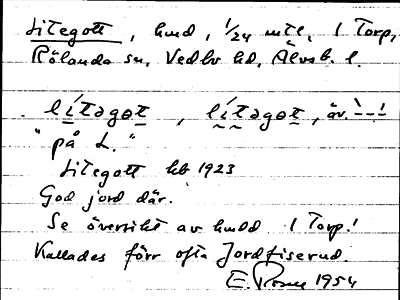 Litegott, hmd, 1/24 mtl, 1 Torp,
Rölanda sn, Vedbo hd, Älvsb. l.
lítagot, lítagot, äv. `--´
"på L."
Litegott hb 1923
God jord där.
Se översikt av hmdd 1 Torp!
Kallades förr ofta Jordfiserud.
E. 1954